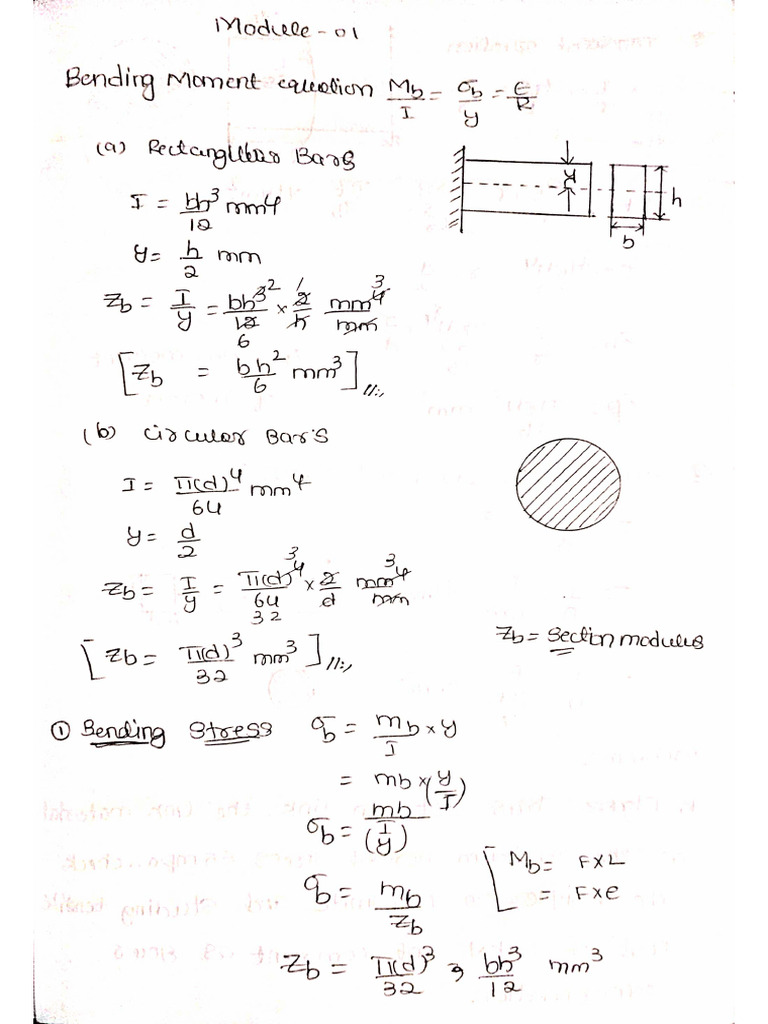 Module-01
Bending Moment equation Mb/I = σb/y = E/R
(a) Rectangular Bars
I = bh³/12 mm4
y = h/2 mm
y
h
b
Zb = I/y = bh³ 2/12 6 × 1 2/h mm4 3/mm
[Zb = bh²/6 mm³]//:,
(b) circular Bar's
I = π(d)⁴/64 mm⁴
y = d/2
Zb = I/y = π(d)⁴ 3/64 32 × 2/d mm⁴ 3/mm
Zb = Sectin modulus
[Zb = π(d)³/32 mm³]//:,
① Bending Stress σb = mb × y/I
= mb × (y/I)
σb = mb/(I/y)
[Mb = F×L
= F×e
σb = mb/Zb
Zb = π(d)³/32 , bh³/12 mm³